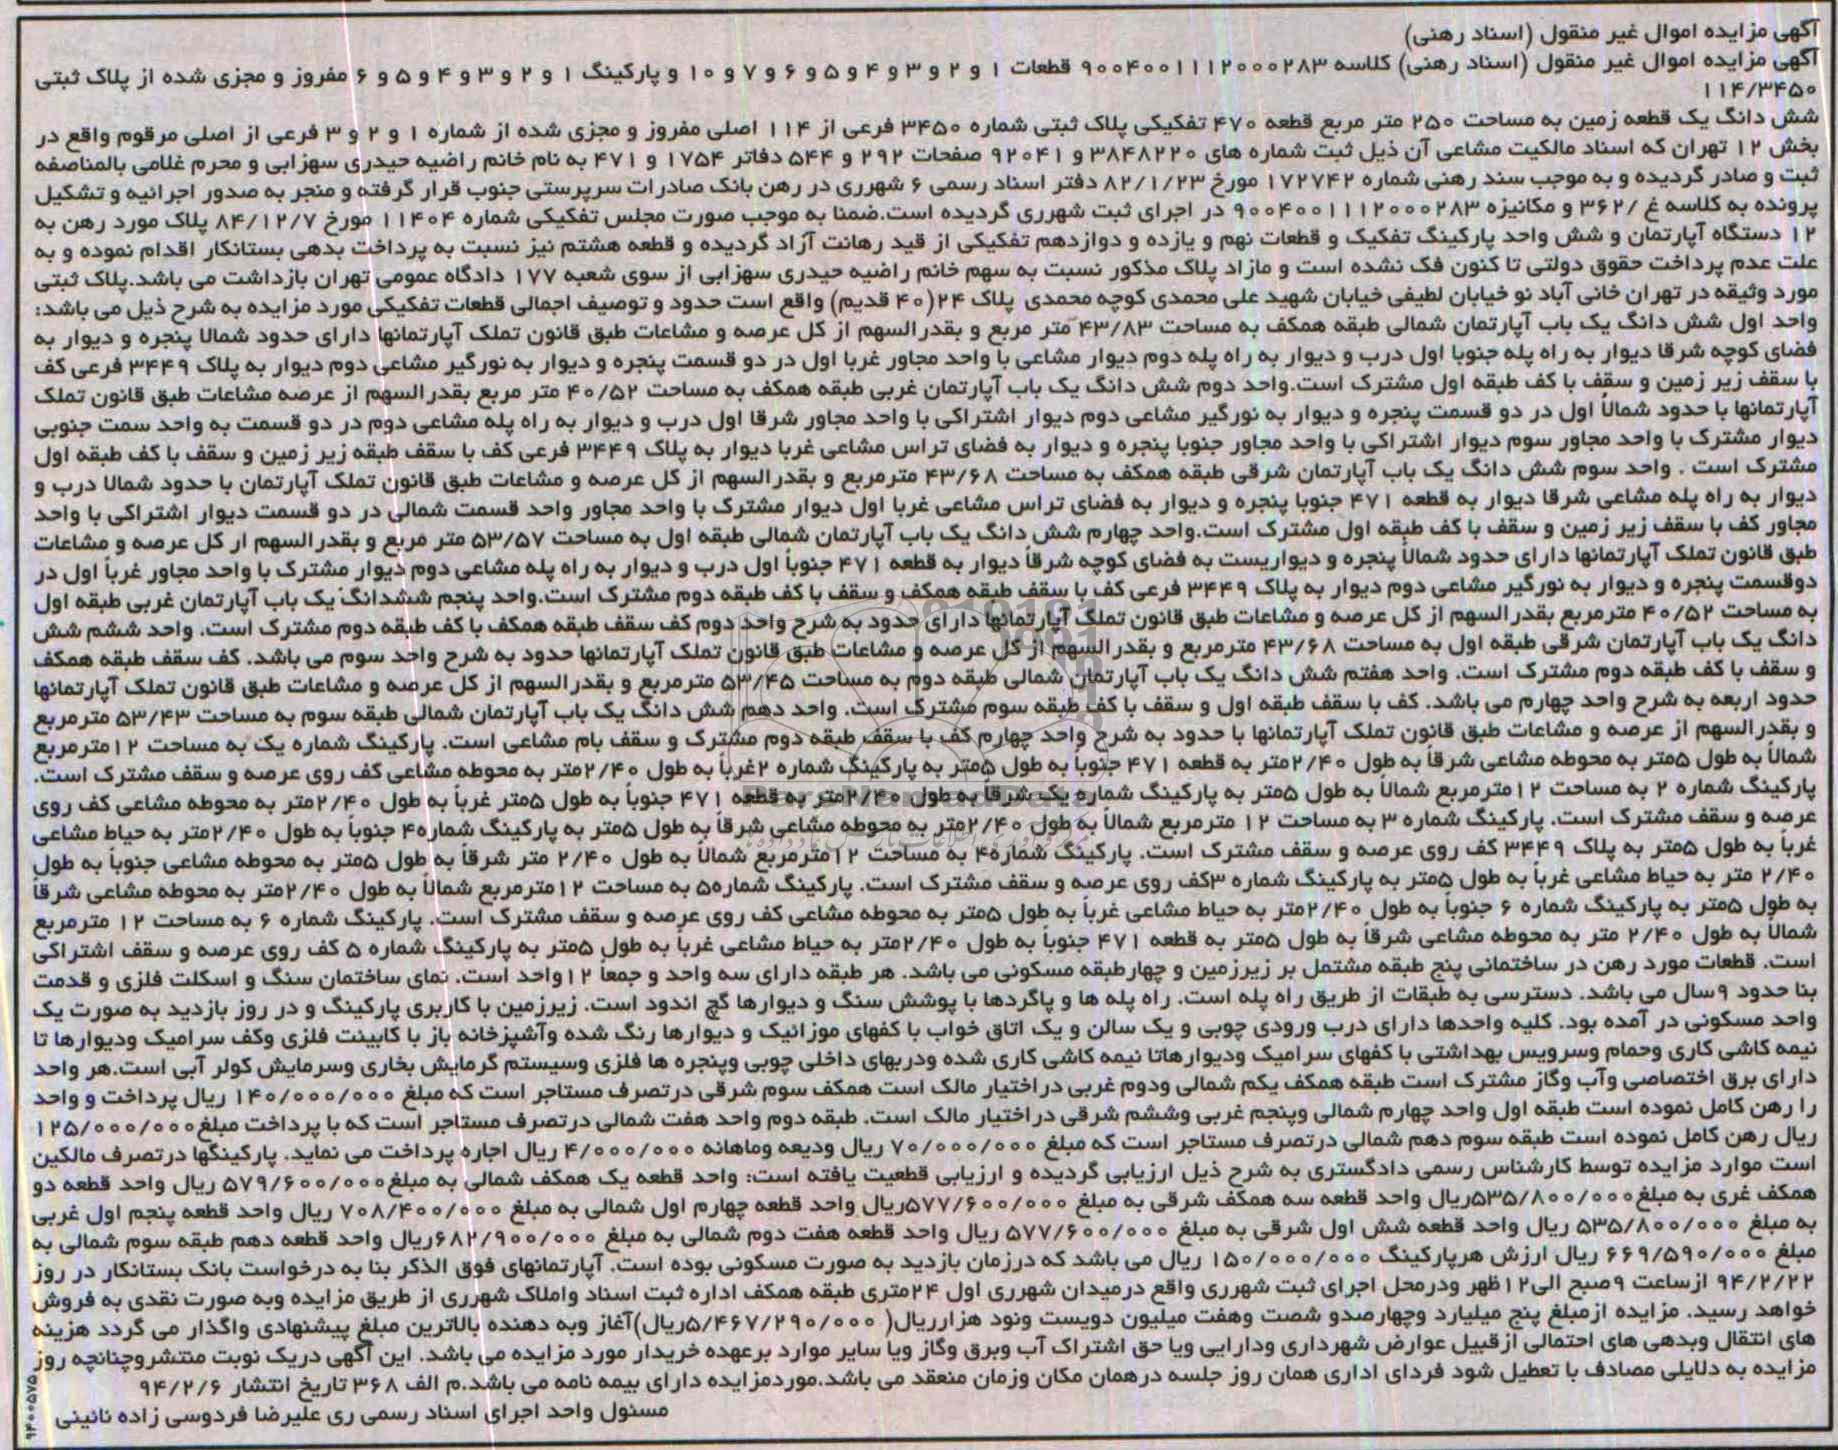 آگهی مزایده اموال غیر منقول (اسناد رهنی)
آگهی مزایده اموال غیر منقول (اسناد رهنی) کلاسه ۹۰۰۴۰۰۱۱۱۲۰۰۰۲۸۳ قطعات ۱ و ۲ و ۳ و ۴ و ۵ و ۶ و ۷ و ۱۰ و پارکینگ ۱ و ۲ و ۳ و ۴ و ۵ و ۶ مفروز و مجزی شده از پلاک ثبتی
۱۱۴/۳۴۵۰
شش دانگ یک قطعه زمین به مساحت ۲۵۰ متر مربع قطعه ۴۷۰ تفکیکی پلاک ثبتی شماره ۳۴۵۰ فرعی از ۱۱۴ اصلی مفروز و مجزی شده از شماره ۱ و ۲ و ۳ فرعی از اصلی مرقوم واقع در
بخش ۱۲ تهران که اسناد مالکیت مشاعی آن ذیل ثبت شماره های ۳۸۴۸۲۲۰ و ۹۲۰۴۱ صفحات ۲۹۲ و ۵۴۴ دفاتر ۱۷۵۴ و ۴۷۱ به نام خانم راضیه حیدری سهزابی و محرم غلامی بالمناصفه
ثبت و صادر گردیده و به موجب سند رهنی شماره ۱۷۲۷۴۲ مورخ ۸۲/۱/۲۳ دفتر اسناد رسمی ۶ شهرری در رهن بانک صادرات سرپرستی جنوب قرار گرفته و منجر به صدور اجرائیه و تشکیل
پرونده به کلاسه غ /۳۶۲ و مکانیزه ۹۰۰۴۰۰۱۱۱۲۰۰۰۲۸۳ در اجرای ثبت شهرری گردیده است.ضمنا به موجب صورت مجلس تفکیکی شماره ۱۱۴۰۴ مورخ ۸۴/۱۲/۷ پلاک مورد رهن به
۱۲ دستگاه آپارتمان و شش واحد پارکینگ تفکیک و قطعات نهم و یازده و دوازدهم تفکیکی از قید رهانت آزاد گردیده و قطعه هشتم نیز نسبت به پرداخت بدهی بستانکار اقدام نموده و به
علت عدم پرداخت حقوق دولتی تا کنون فک نشده است و مازاد پلاک مذکور نسبت به سهم خانم راضیه حیدری سهزابی از سوی شعبه ۱۷۷ دادگاه عمومی تهران بازداشت می باشد.پلاک ثبتی
مورد وثیقه در تهران خانی آباد نو خیابان لطیفی خیابان شهید علی محمدی کوچه محمدی پلاک ۲۴(۴۰ قدیم) واقع است حدود و توصیف اجمالی قطعات تفکیکی مورد مزایده به شرح ذیل می باشد:
واحد اول شش دانگ یک باب آپارتمان شمالی طبقه همکف به مساحت ۴۳/۸۳ متر مربع و بقدرالسهم از کل عرصه و مشاعات طبق قانون تملک آپارتمانها دارای حدود شمالا پنجره و دیوار به
فضای کوچه شرقا دیوار به راه پله جنوبا اول درب و دیوار به راه پله دوم دیوار مشاعی با واحد مجاور غربا اول در دو قسمت پنجره و دیوار به نورگیر مشاعی دوم دیوار به پلاک ۳۴۴۹ فرعی کف
با سقف زیر زمین و سقف با کف طبقه اول مشترک است.واحد دوم شش دانگ یک باب آپارتمان غربی طبقه همکف به مساحت ۴۰/۵۲ متر مربع بقدرالسهم از عرصه مشاعات طبق قانون تملک
آپارتمانها با حدود شمالاً اول در دو قسمت پنجره و دیوار به نورگیر مشاعی دوم دیوار اشتراکی با واحد مجاور شرقا اول درب و دیوار به راه پله مشاعی دوم در دو قسمت به واحد سمت جنوبی
دیوار مشترک با واحد مجاور سوم دیوار اشتراکی با واحد مجاور جنوبا پنجره و دیوار به فضای تراس مشاعی غربا دیوار به پلاک ۳۴۴۹ فرعی کف با سقف طبقه زیر زمین و سقف با کف طبقه اول
مشترک است . واحد سوم شش دانگ یک باب آپارتمان شرقی طبقه همکف به مساحت ۴۳/۶۸ مترمربع و بقدرالسهم از کل عرصه و مشاعات طبق قانون تملک آپارتمان با حدود شمالا درب و
دیوار به راه پله مشاعی شرقا دیوار به قطعه ۴۷۱ جنوبا پنجره و دیوار به فضای تراس مشاعی غربا اول دیوار مشترک با واحد مجاور واحد قسمت شمالی در دو قسمت دیوار اشتراکی با واحد
مجاور کف با سقف زیر زمین و سقف با کف طبقه اول مشترک است.واحد چهارم شش دانگ یک باب آپارتمان شمالی طبقه اول به مساحت ۵۳/۵۷ متر مربع و بقدرالسهم ار کل عرصه و مشاعات
طبق قانون تملک آپارتمانها دارای حدود شمالاً پنجره و دیواریست به فضای کوچه شرقاً دیوار به قطعه ۴۷۱ جنوباً اول درب و دیوار به راه پله مشاعی دوم دیوار مشترک با واحد مجاور غرباً اول در
دوقسمت پنجره و دیوار به نورگیر مشاعی دوم دیوار به پلاک ۳۴۴۹ فرعی کف با سقف طبقه همکف و سقف با کف طبقه دوم مشترک است.واحد پنجم ششدانگ یک باب آپارتمان غربی طبقه اول
به مساحت ۴۰/۵۲ مترمربع بقدرالسهم از کل عرصه و مشاعات طبق قانون تملک آپارتمانها دارای حدود به شرح واحد دوم کف سقف طبقه همکف با کف طبقه دوم مشترک است. واحد ششم شش
دانگ یک باب آپارتمان شرقی طبقه اول به مساحت ۴۳/۶۸ مترمربع و بقدرالسهم از کل عرصه و مشاعات طبق قانون تملک آپارتمانها حدود به شرح واحد سوم می باشد. کف سقف طبقه همکف
و سقف با کف طبقه دوم مشترک است. واحد هفتم شش دانگ یک باب آپارتمان شمالی طبقه دوم به مساحت ۵۳/۴۵ مترمربع و بقدرالسهم از کل عرصه و مشاعات طبق قانون تملک آپارتمانها
حدود اربعه به شرح واحد چهارم می باشد. کف با سقف طبقه اول و سقف با کف طبقه سوم مشترک است. واحد دهم شش دانگ یک باب آپارتمان شمالی طبقه سوم به مساحت ۵۳/۴۳ مترمربع
و بقدرالسهم از عرصه و مشاعات طبق قانون تملک آپارتمانها با حدود به شرح واحد چهارم کف با سقف طبقه دوم مشترک و سقف بام مشاعی است. پارکینگ شماره یک به مساحت ۱۲مترمربع
شمالاً به طول ۵متر به محوطه مشاعی شرقاً به طول ۲/۴۰متر به قطعه ۴۷۱ جنوباً به طول ۵متر به پارکینگ شماره ۲غرباً به طول ۲/۴۰متر به محوطه مشاعی کف روی عرصه و سقف مشترک است.
پارکینگ شماره ۲ به مساحت ۱۲مترمربع شمالاً به طول ۵متر به پارکینگ شماره یک شرقاً به طول ۲/۴۰متر به قطعه ۴۷۱ جنوباً به طول ۵متر غرباً به طول ۲/۴۰متر به محوطه مشاعی کف روی
عرصه و سقف مشترک است. پارکینگ شماره ۳ به مساحت ۱۲ مترمربع شمالاً به طول ۲/۴۰متر به محوطه مشاعی شرقاً به طول ۵متر به پارکینگ شماره۴ جنوباً به طول ۲/۴۰متر به حیاط مشاعی
غرباً به طول ۵متر به پلاک ۳۴۴۹ کف روی عرصه و سقف مشترک است. پارکینگ شماره۴ به مساحت ۱۲مترمربع شمالاً به طول ۲/۴۰ متر شرقاً به طول ۵متر به محوطه مشاعی جنوباً به طول
۲/۴۰ متر به حیاط مشاعی غرباً به طول ۵متر به پارکینگ شماره ۳کف روی عرصه و سقف مشترک است. پارکینگ شماره۵ به مساحت ۱۲مترمربع شمالاً به طول ۲/۴۰متر به محوطه مشاعی شرقاً
به طول ۵متر به پارکینگ شماره ۶ جنوباً به طول ۲/۴۰متر به حیاط مشاعی غرباً به طول ۵متر به محوطه مشاعی کف روی عرصه و سقف مشترک است. پارکینگ شماره ۶ به مساحت ۱۲ مترمربع
شمالاً به طول ۲/۴۰ متر به محوطه مشاعی شرقاً به طول ۵متر به قطعه ۴۷۱ جنوباً به طول ۲/۴۰متر به حیاط مشاعی غرباً به طول ۵متر به پارکینگ شماره ۵ کف روی عرصه و سقف اشتراکی
است. قطعات مورد رهن در ساختمانی پنج طبقه مشتمل بر زیرزمین و چهارطبقه مسکونی می باشد. هر طبقه دارای سه واحد و جمعاً ۱۲واحد است. نمای ساختمان سنگ و اسکلت فلزی و قدمت
بنا حدود ۹سال می باشد. دسترسی به طبقات از طریق راه پله است. راه پله ها و پاگردها با پوشش سنگ و دیوارها گچ اندود است. زیرزمین با کاربری پارکینگ و در روز بازدید به صورت یک
واحد مسکونی در آمده بود. کلیه واحدها دارای درب ورودی چوبی و یک سالن و یک اتاق خواب با کفهای موزائیک و دیوارها رنگ شده وآشپزخانه باز با کابینت فلزی وکف سرامیک ودیوارها تا
نیمه کاشی کاری وحمام وسرویس بهداشتی با کفهای سرامیک ودیوارهاتا نیمه کاشی کاری شده ودربهای داخلی چوبی وپنجره ها فلزی وسیستم گرمایش بخاری وسرمایش کولر آبی است.هر واحد
دارای برق اختصاصی وآب وگاز مشترک است طبقه همکف یکم شمالی ودوم غربی دراختیار مالک است همکف سوم شرقی درتصرف مستاجر است که مبلغ ۱۴۰/۰۰۰/۰۰۰ ریال پرداخت و واحد
را رهن کامل نموده است طبقه اول واحد چهارم شمالی وپنجم غربی وششم شرقی دراختیار مالک است. طبقه دوم واحد هفت شمالی درتصرف مستاجر است که با پرداخت مبلغ۱۲۵/۰۰۰/۰۰۰
ریال رهن کامل نموده است طبقه سوم دهم شمالی درتصرف مستاجر است که مبلغ ۷۰/۰۰۰/۰۰۰ ریال ودیعه وماهانه ۴/۰۰۰/۰۰۰ ریال اجاره پرداخت می نماید. پارکینگها درتصرف مالکین
است موارد مزایده توسط کارشناس رسمی دادگستری به شرح ذیل ارزیابی گردیده و ارزیابی قطعیت یافته است: واحد قطعه یک همکف شمالی به مبلغ۵۷۹/۶۰۰/۰۰۰ ریال واحد قطعه دو
همکف غری به مبلغ۵۳۵/۸۰۰/۰۰۰ریال واحد قطعه سه همکف شرقی به مبلغ ۵۷۷/۶۰۰/۰۰۰ریال واحد قطعه چهارم اول شمالی به مبلغ ۷۰۸/۴۰۰/۰۰۰ ریال واحد قطعه پنجم اول غربی
به مبلغ ۵۳۵/۸۰۰/۰۰۰ ریال واحد قطعه شش اول شرقی به مبلغ ۵۷۷/۶۰۰/۰۰۰ ریال واحد قطعه هفت دوم شمالی به مبلغ ۶۸۲/۹۰۰/۰۰۰ریال واحد قطعه دهم طبقه سوم شمالی به
مبلغ ۶۶۹/۵۹۰/۰۰۰ ریال ارزش هرپارکینگ ۱۵۰/۰۰۰/۰۰۰ ریال می باشد که درزمان بازدید به صورت مسکونی بوده است. آپارتمانهای فوق الذکر بنا به درخواست بانک بستانکار در روز
۹۴/۲/۲۲ ازساعت ۹صبح الی۱۲ظهر ودرمحل اجرای ثبت شهرری واقع درمیدان شهرری اول ۲۴متری طبقه همکف اداره ثبت اسناد واملاک شهرری از طریق مزایده وبه صورت نقدی به فروش
خواهد رسید. مزایده ازمبلغ پنج میلیارد وچهارصدو شصت وهفت میلیون دویست ونود هزارریال( ۵/۴۶۷/۲۹۰/۰۰۰ریال)آغاز وبه دهنده بالاترین مبلغ پیشنهادی واگذار می گردد هزینه
های انتقال وبدهی های احتمالی ازقبیل عوارض شهرداری ودارایی ویا حق اشتراک آب وبرق وگاز ویا سایر موارد برعهده خریدار مورد مزایده می باشد. این آگهی دریک نوبت منتشروچنانچه روز
مزایده به دلایلی مصادف با تعطیل شود فردای اداری همان روز جلسه درهمان مکان وزمان منعقد می باشد.موردمزایده دارای بیمه نامه می باشد.م الف ۳۶۸ تاریخ انتشار ۹۴/۲/۶
مسئول واحد اجرای اسناد رسمی ری علیرضا فردوسی زاده نائینی
۹۴۰۰۵۷۵